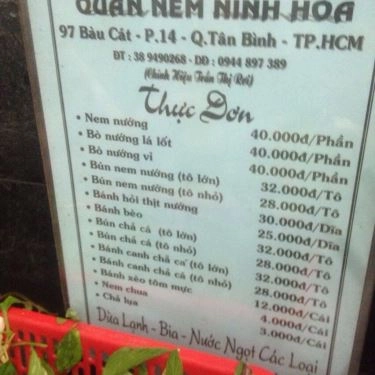 QUÁN NEM NINH HÒA
97 Bàu Cát - P.14 - Q.Tân Bình - TP.HCM
ĐT : 38 9490268 - DĐ : 0944 897 389
(Chính Hiệu Trần Thị Rơi)
Thực Đơn
• Nem nướng 40.000đ/Phần
• Bò nướng lá lốt 40.000đ/Phần
• Bò nướng vỉ 40.000đ/Phần
• Bún nem nướng (tô lớn) 32.000đ/Tô
• Bún nem nướng (tô nhỏ) 28.000đ/Tô
• Bánh hỏi thịt nướng 30.000đ/Dĩa
• Bánh bèo 25.000đ/Dĩa
• Bún chả cá (tô lớn) 32.000đ/Tô
• Bún chả cá (tô nhỏ) 28.000đ/Tô
• Bánh canh chả cá (tô lớn) 32.000đ/Tô
• Bánh canh chả cá (tô nhỏ) 28.000đ/Tô
• Bánh xèo tôm mực 12.000đ/Cái
• Nem chua 4.000đ/Cái
• Chả lụa 3.000đ/Cái
Dừa Lạnh - Bia - Nước Ngọt Các Loại